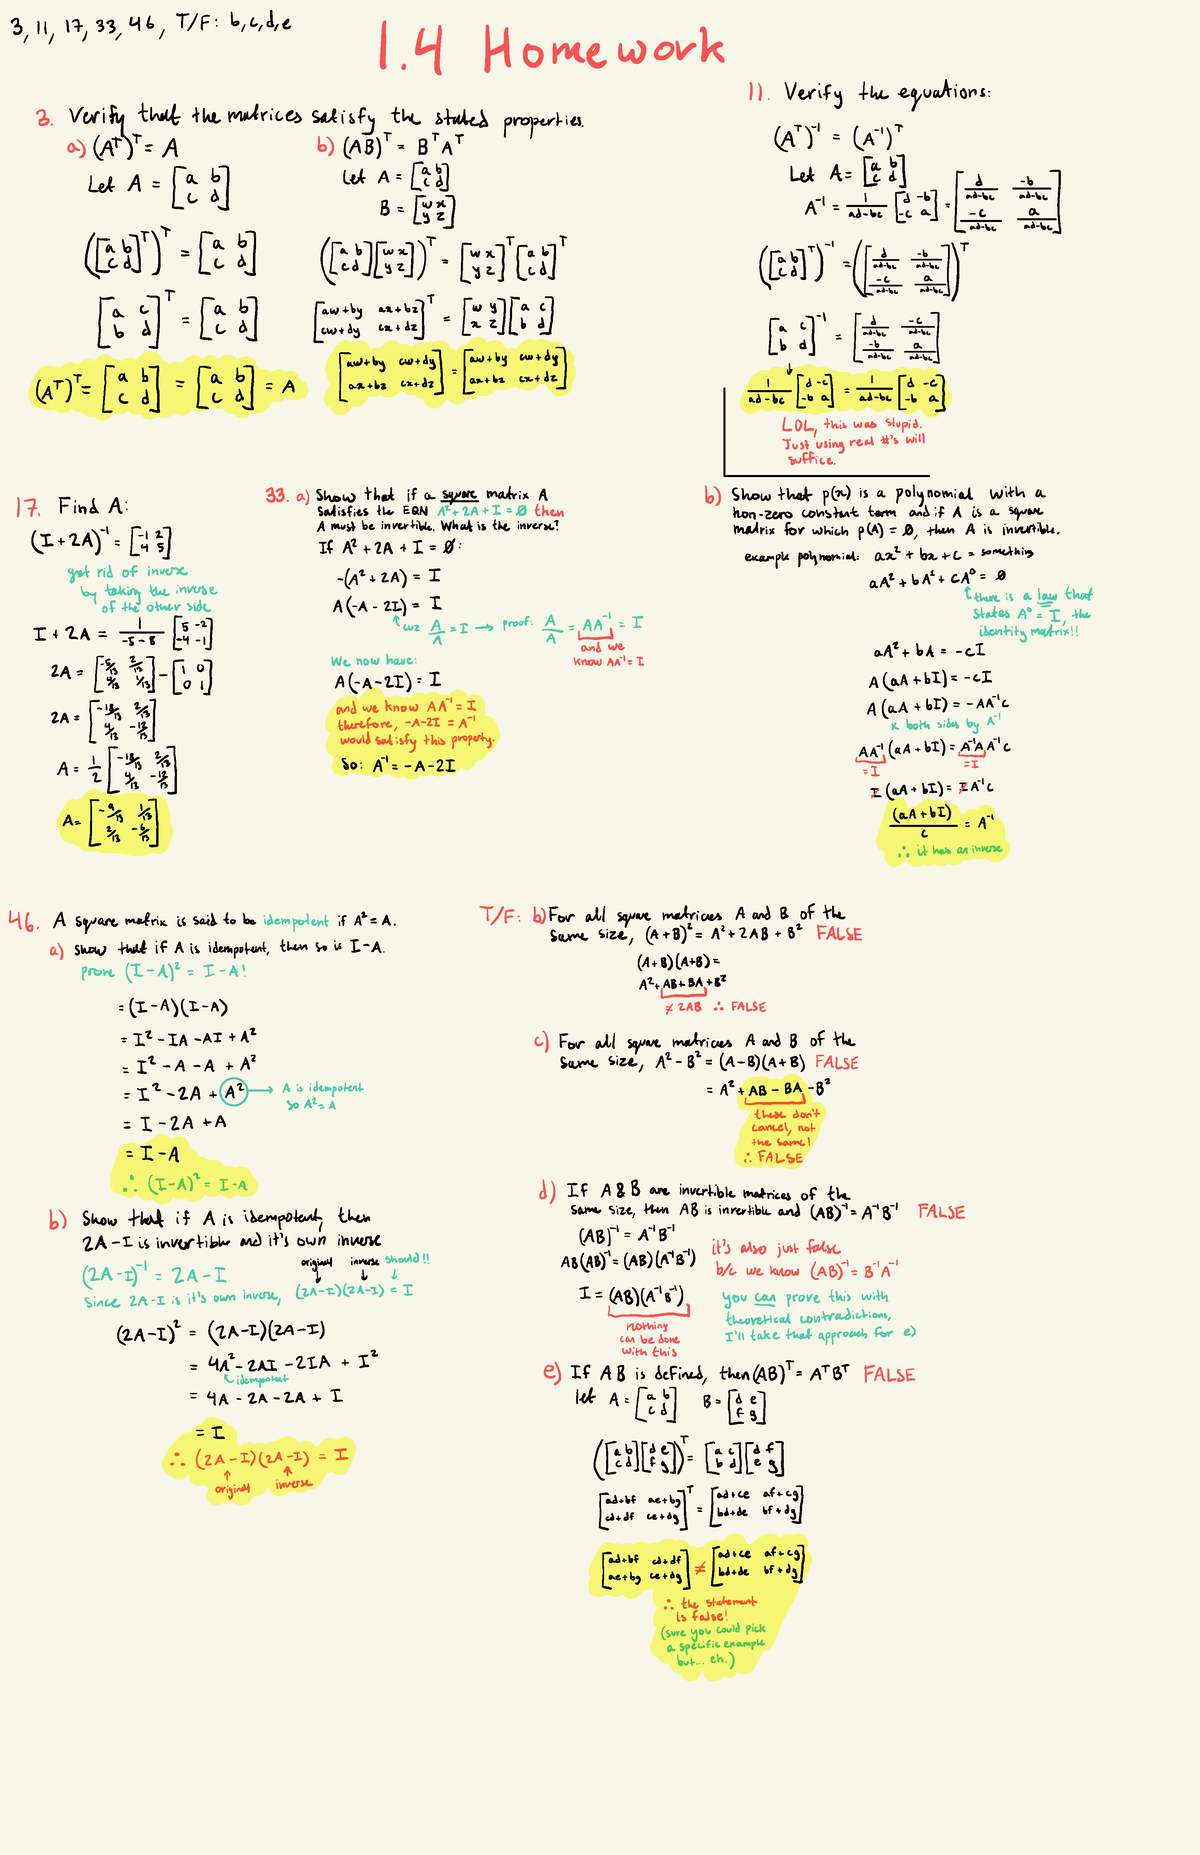 3, 11, 17, 33, 46, T/F: b,c,d,e
1.4 Homework
3. Verify that the matrices satisfy the stated properties.
a) (Aᵀ)ᵀ = A
Let A = [a b; c d]
([a b; c d]ᵀ)ᵀ = [a b; c d]
[a c; b d]ᵀ = [a b; c d]
(Aᵀ)ᵀ = [a b; c d] = [a b; c d] = A
b) (AB)ᵀ = BᵀAᵀ
let A = [a b; c d]
B = [w x; y z]
([a b; c d][w x; y z])ᵀ = [w x; y z]ᵀ[a b; c d]ᵀ
[aw+by ax+bz; cw+dy cx+dz]ᵀ = [w y; x z][a c; b d]
[aw+by cw+dy; ax+bz cx+dz] = [aw+by cw+dy; ax+bz cx+dz]
11. Verify the equations:
(Aᵀ)⁻¹ = (A⁻¹)ᵀ
Let A = [a b; c d]
A⁻¹ = 1/(ad-bc) [d -b; -c a] = [d/(ad-bc) -b/(ad-bc); -c/(ad-bc) a/(ad-bc)]
([a b; c d]ᵀ)⁻¹ = ([d/(ad-bc) -b/(ad-bc); -c/(ad-bc) a/(ad-bc)])ᵀ
[a c; b d]⁻¹ = [d/(ad-bc) -c/(ad-bc); -b/(ad-bc) a/(ad-bc)]
↓
1/(ad-bc) [d -c; -b a] = 1/(ad-bc) [d -c; -b a]
LOL, this was stupid.
Just using real #'s will
suffice.
17. Find A:
(I + 2A)⁻¹ = [-1 2; 4 5]
get rid of inverse
by taking the inverse
of the other side
I + 2A = 1/(-5-8) [5 -2; -4 -1]
2A = [-5/13 2/13; 4/13 1/13] - [1 0; 0 1]
2A = [-18/13 2/13; 4/13 -12/13]
A = 1/2 [-18/13 2/13; 4/13 -12/13]
A = [-9/13 1/13; 2/13 -6/13]
33. a) Show that if a square matrix A
satisfies the EQN A² + 2A + I = 0 then
A must be invertible. What is the inverse?
If A² + 2A + I = 0:
-(A² + 2A) = I
A(-A - 2I) = I
↑ cuz A/A = I → proof: A/A = AA⁻¹ = I
and we
know AA⁻¹ = I
We now have:
A(-A-2I) = I
and we know AA⁻¹ = I
therefore, -A-2I = A⁻¹
would satisfy this property.
So: A⁻¹ = -A-2I
b) Show that p(x) is a polynomial with a
non-zero constant term and if A is a square
matrix for which p(A) = 0, then A is invertible.
example polynomial: ax² + bx + c = something
aA² + bA¹ + cA⁰ = 0
↑ there is a law that
states A⁰ = I, the
identity matrix!!
aA² + bA = -cI
A(aA + bI) = -cI
A(aA + bI) = -AA⁻¹c
x both sides by A⁻¹
AA⁻¹(aA + bI) = A⁻¹A A⁻¹c
= I = I
I(aA + bI) = IA⁻¹c
(aA + bI)/c = A⁻¹
∴ it has an inverse
46. A square matrix is said to be idempotent if A² = A.
a) show that if A is idempotent, then so is I-A.
prove (I-A)² = I-A!
= (I-A)(I-A)
= I² - IA - AI + A²
= I² - A - A + A²
= I² - 2A + A² → A is idempotent
so A² = A
= I - 2A + A
= I - A
∴ (I-A)² = I-A
b) Show that if A is idempotent, then
2A-I is invertible and it's own inverse
(2A-I)⁻¹ = 2A-I
original inverse should!!
↓ ↓ ↓
Since 2A-I is it's own inverse, (2A-I)(2A-I) = I
(2A-I)² = (2A-I)(2A-I)
= 4A² - 2AI - 2IA + I²
↖ idempotent
= 4A - 2A - 2A + I
= I
∴ (2A-I)(2A-I) = I
↑ ↑
original inverse
T/F: b) For all square matrices A and B of the
same size, (A+B)² = A² + 2AB + B² FALSE
(A+B)(A+B) =
A² + AB + BA + B²
≠ 2AB ∴ FALSE
c) For all square matrices A and B of the
same size, A² - B² = (A-B)(A+B) FALSE
= A² + AB - BA - B²
these don't
cancel, not
the same!
∴ FALSE
d) If A & B are invertible matrices of the
same size, then AB is invertible and (AB)⁻¹ = A⁻¹B⁻¹ FALSE
(AB)⁻¹ = A⁻¹B⁻¹
AB(AB)⁻¹ = (AB)(A⁻¹B⁻¹)
I = (AB)(A⁻¹B⁻¹)
nothing
can be done
with this
it's also just false
b/c we know (AB)⁻¹ = B⁻¹A⁻¹
you can prove this with
theoretical contradictions,
I'll take that approach for e)
e) If AB is defined, then (AB)ᵀ = AᵀBᵀ FALSE
let A = [a b; c d] B = [d e; f g]
([a b; c d][d e; f g])ᵀ = [a c; b d][d f; e g]
[ad+bf ae+bg; cd+df ce+dg]ᵀ = [ad+ce af+cg; bd+de bf+dg]
[ad+bf cd+df; ae+bg ce+dg] ≠ [ad+ce af+cg; bd+de bf+dg]
∴ the statement
is false!
(sure you could pick
a specific example
but... eh.)